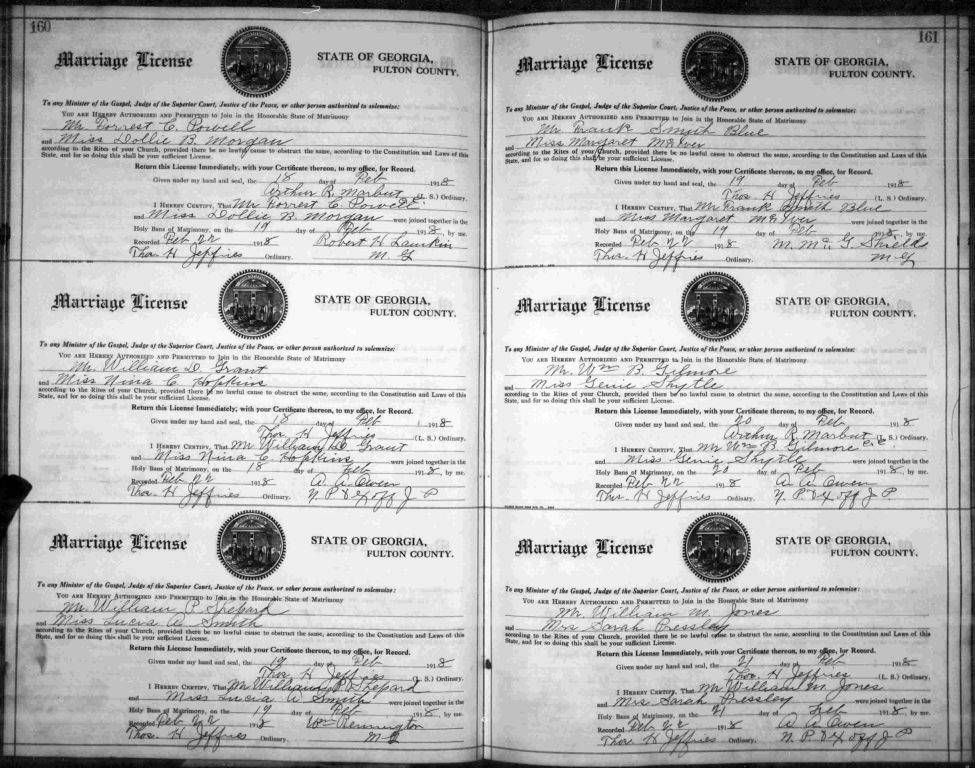 160
Marriage License
STATE OF GEORGIA,
FULTON COUNTY.
To any Minister of the Gospel, Judge of the Superior Court, Justice of the Peace, or other person authorized to solemnize:
YOU ARE HEREBY AUTHORIZED AND PERMITTED to Join in the Honorable State of Matrimony
Mr. Forrest C. Powell
and Miss Dollie B. Morgan
according to the Rites of your Church, provided there be no lawful cause to obstruct the same, according to the Constitution and Laws of this
State, and for so doing this shall be your sufficient License.
Return this License Immediately, with your Certificate thereon, to my office, for Record.
Given under my hand and seal, the 18 day of Feb 1918
Arthur R. Marbut (L. S.) Ordinary.
I HEREBY CERTIFY, That Mr Forrest C. Powell
and Miss Dollie B. Morgan were joined together in the
Holy Bans of Matrimony, on the 19 day of Feb 1918, by me.
Recorded Feb 22 1918 Robert H Lamkin
Thos. H Jeffries Ordinary. M. G
Marriage License
STATE OF GEORGIA,
FULTON COUNTY.
To any Minister of the Gospel, Judge of the Superior Court, Justice of the Peace, or other person authorized to solemnize:
YOU ARE HEREBY AUTHORIZED AND PERMITTED to Join in the Honorable State of Matrimony
Mr. William D Grant
and Miss Nina C. Hopkins
according to the Rites of your Church, provided there be no lawful cause to obstruct the same, according to the Constitution and Laws of this
State, and for so doing this shall be your sufficient License.
Return this License Immediately, with your Certificate thereon, to my office, for Record.
Given under my hand and seal, the 18 day of Feb 1918
Thos H Jeffries (L. S.) Ordinary.
I HEREBY CERTIFY, That Mr William D. Grant
and Miss Nina C Hopkins were joined together in the
Holy Bans of Matrimony, on the 18 day of Feb 1918, by me.
Recorded Feb 22 1918 A. A. Owen
Thos. H Jeffries Ordinary. N. P. & Ex off J P
Marriage License
STATE OF GEORGIA,
FULTON COUNTY.
To any Minister of the Gospel, Judge of the Superior Court, Justice of the Peace, or other person authorized to solemnize:
YOU ARE HEREBY AUTHORIZED AND PERMITTED to Join in the Honorable State of Matrimony
Mr. William P. Shepard
and Miss Lucia A Smith
according to the Rites of your Church, provided there be no lawful cause to obstruct the same, according to the Constitution and Laws of this
State, and for so doing this shall be your sufficient License.
Return this License Immediately, with your Certificate thereon, to my office, for Record.
Given under my hand and seal, the 19 day of Feb 1918
Thos H Jeffries (L. S.) Ordinary.
I HEREBY CERTIFY, That Mr William P Shepard
and Miss Lucia A Smith were joined together in the
Holy Bans of Matrimony, on the 19 day of Feb 1918, by me.
Recorded Feb 22 1918 Wm Rennington
Thos. H Jeffries Ordinary. M G
161
Marriage License
STATE OF GEORGIA,
FULTON COUNTY.
To any Minister of the Gospel, Judge of the Superior Court, Justice of the Peace, or other person authorized to solemnize:
YOU ARE HEREBY AUTHORIZED AND PERMITTED to Join in the Honorable State of Matrimony
Mr. Frank Smith Blue
and Miss Margaret McIver
according to the Rites of your Church, provided there be no lawful cause to obstruct the same, according to the Constitution and Laws of this
State, and for so doing this shall be your sufficient License.
Return this License Immediately, with your Certificate thereon, to my office, for Record.
Given under my hand and seal, the 19 day of Feb 1918
Thos. H Jeffries (L. S.) Ordinary.
I HEREBY CERTIFY, That Mr Frank Smith Blue
and Miss Margaret McIver were joined together in the
Holy Bans of Matrimony, on the 19 day of Feb 1918, by me.
Recorded Feb 22 1918 M. Mc G Shields
Thos. H Jeffries Ordinary. M G
Marriage License
STATE OF GEORGIA,
FULTON COUNTY.
To any Minister of the Gospel, Judge of the Superior Court, Justice of the Peace, or other person authorized to solemnize:
YOU ARE HEREBY AUTHORIZED AND PERMITTED to Join in the Honorable State of Matrimony
Mr. Wm B. Gilmore
and Miss Genie Shytle
according to the Rites of your Church, provided there be no lawful cause to obstruct the same, according to the Constitution and Laws of this
State, and for so doing this shall be your sufficient License.
Return this License Immediately, with your Certificate thereon, to my office, for Record.
Given under my hand and seal, the 20 day of Feb 1918
Arthur R. Marbut (L. S.) Ordinary.
I HEREBY CERTIFY, That Mr Wm B Gilmore
and Miss Genie Shytle were joined together in the
Holy Bans of Matrimony, on the 20 day of Feb 1918, by me.
Recorded Feb 22 1918 A A Owen
Thos. H Jeffries Ordinary. N. P. & Ex off J P
Marriage License
STATE OF GEORGIA,
FULTON COUNTY.
To any Minister of the Gospel, Judge of the Superior Court, Justice of the Peace, or other person authorized to solemnize:
YOU ARE HEREBY AUTHORIZED AND PERMITTED to Join in the Honorable State of Matrimony
Mr. William M. Jones
and Mrs Sarah Pressley
according to the Rites of your Church, provided there be no lawful cause to obstruct the same, according to the Constitution and Laws of this
State, and for so doing this shall be your sufficient License.
Return this License Immediately, with your Certificate thereon, to my office, for Record.
Given under my hand and seal, the 21 day of Feb 1918
Thos. H Jeffries (L. S.) Ordinary.
I HEREBY CERTIFY, That Mr William M. Jones
and Mrs Sarah Pressley were joined together in the
Holy Bans of Matrimony, on the 21 day of Feb 1918, by me.
Recorded Feb 22 1918 A A Owen
Thos. H Jeffries Ordinary. N. P. & Ex off J P